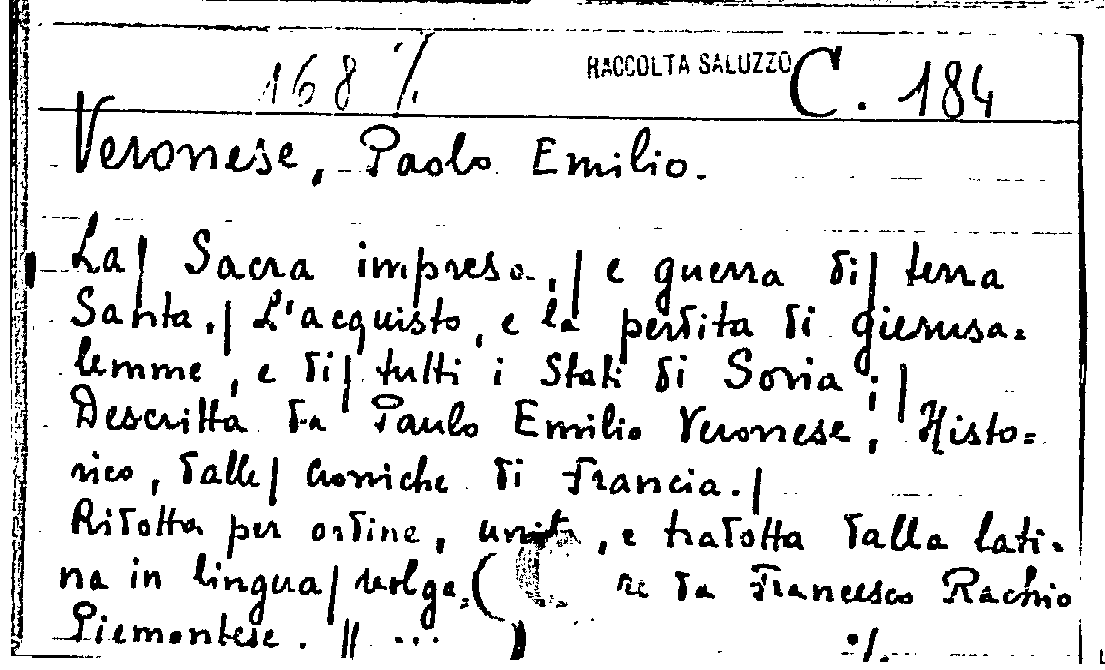 168 ./. RACCOLTA SALUZZO C. 184
Veronese, Paolo Emilio.
La| Sacra impresa,| e guerra di| terra
Santa.| L'acquisto, e la perdita di Gierusa=
lemme, e di| tutti i Stati di Soria;|
Descritta da Paulo Emilio Veronese, Histo=
rico, dalle| croniche di Francia.|
Ridotta per ordine, unita, e tradotta dalla lati=
na in lingua| volga=( re da Francesco Rachio
Piemontese. || ... ) ./.